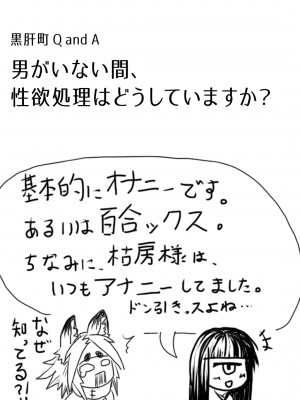 黒肝町 Q and A
男がいない間、
性欲処理はどうしていますか?
基本的にオナニーです。
あるいは百合ックス。
ちなみに、枯房様は、
いつもアナニーしてました。
ドン引きっスよね…
なぜ
知ってる?!